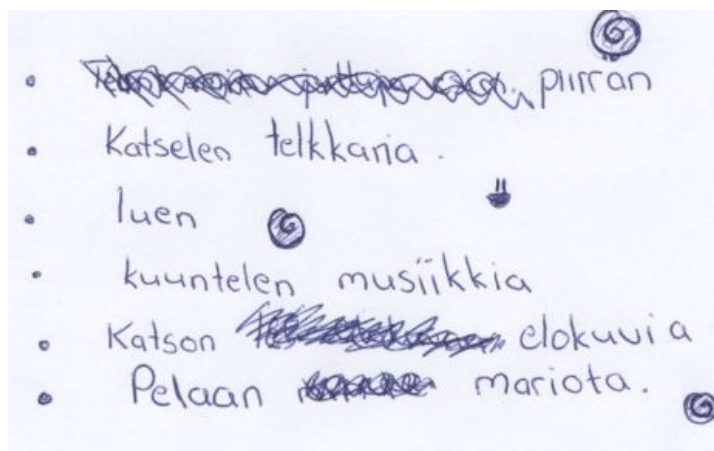 • piirran
• Katselen telkkaria.
• luen
• kuuntelen musiikkia
• Katson elokuvia
• Pelaan mariota.